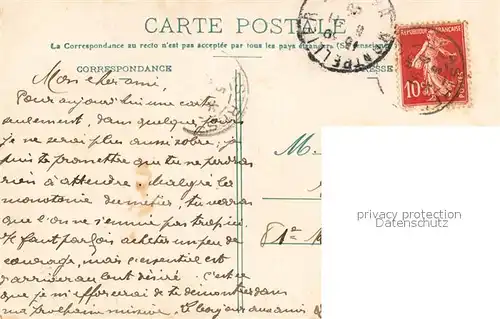 CARTE POSTALE
La Correspondance au recto n'est pas acceptée par tous les pays étrangers (Se renseigner
CORRESPONDANCE
RESSE
MONTPELLIER
REPUBLIQUE FRANÇAISE
10c
POSTES
Mon cher ami,
Pour aujourd'hui une carte
seulement, dans quelques jours
je ne serai plus aussi sobre, je
puis te promettre que tu ne perdras
rien à attendre. Malgré la
monotonie du métier, tu verras
que l'on ne s'ennuie pas trop ici.
Il faut parfois acheter un peu de
courage, mais l'essentiel est
d'arriver au but désiré. C'est ce
que je m'efforcerai de te démontrer dans
ma prochaine missive. Le bonjour aux amis
M
privacy protection
Datenschutz